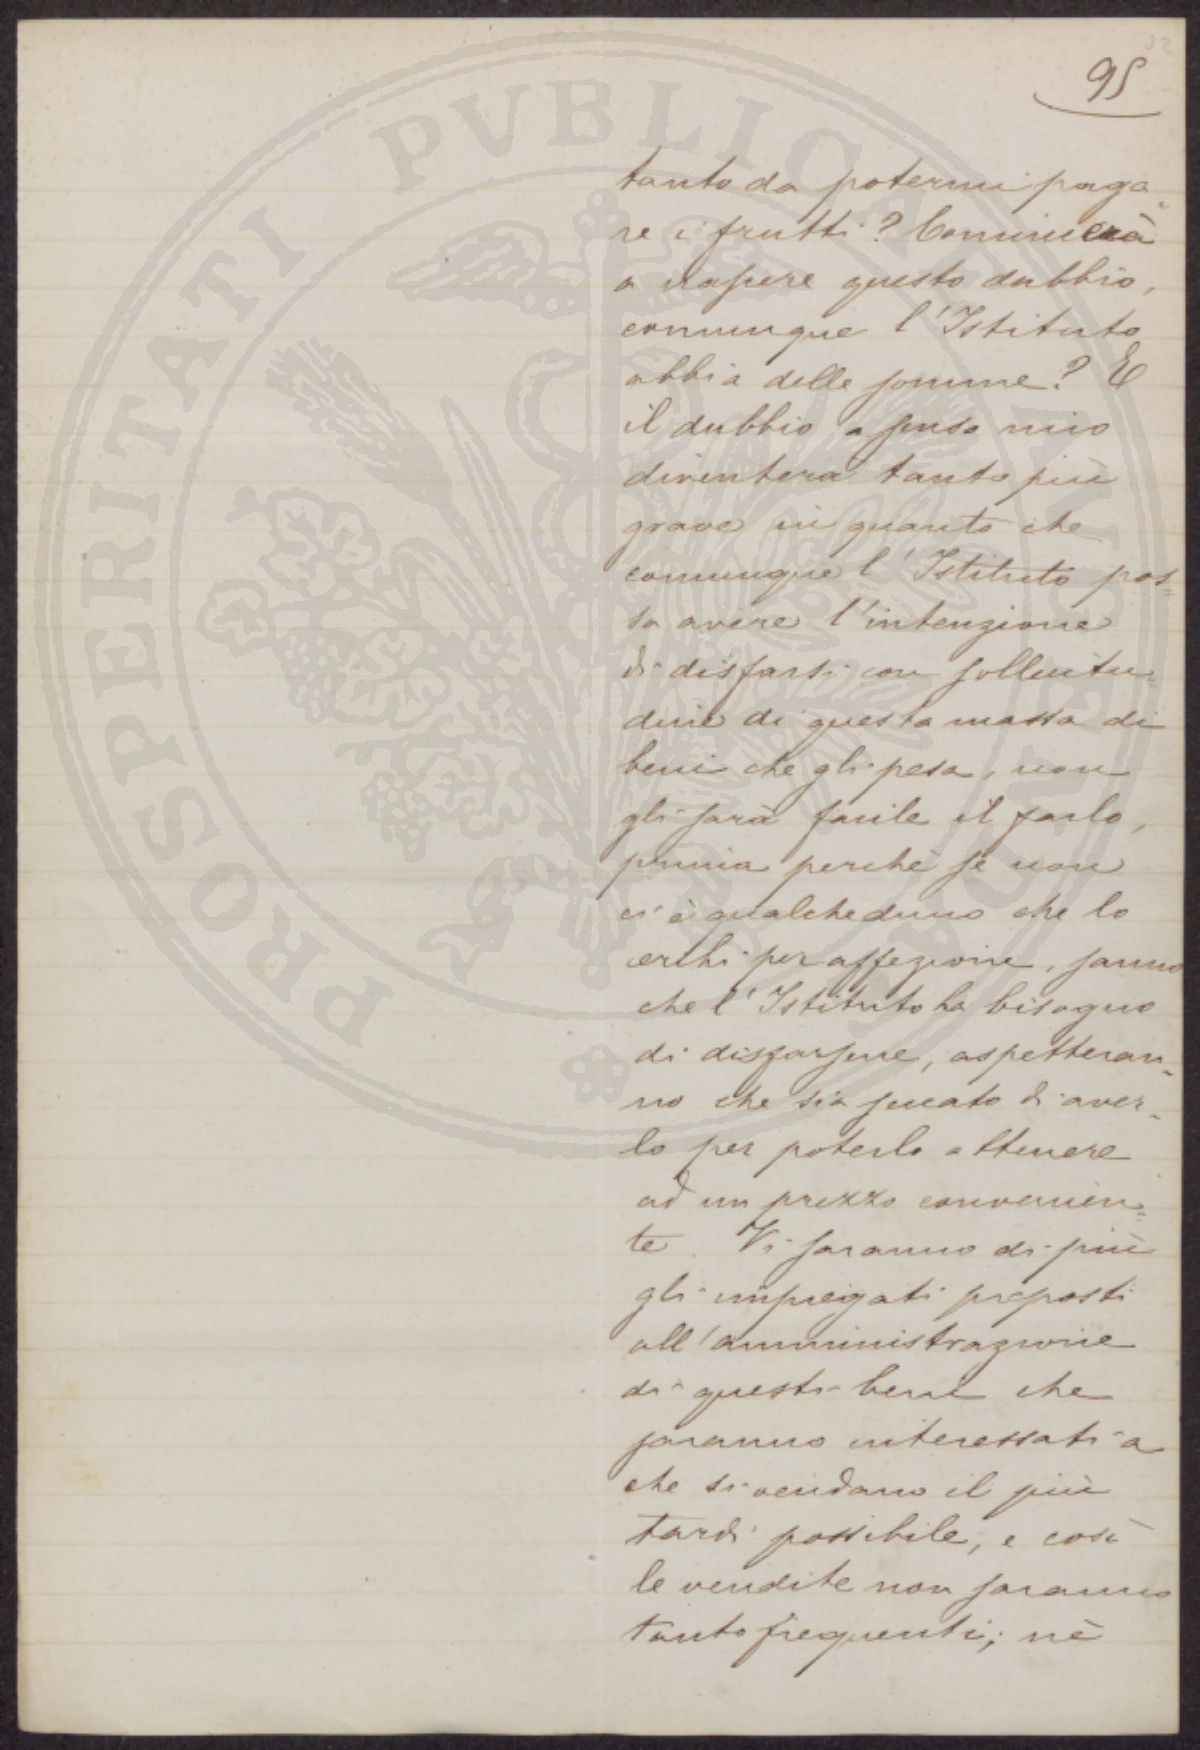 95
tanto da potermi paga-
re i frutti? Comincerà
a nascere questo dubbio,
comunque l'Istituto
abbia delle somme? E
il dubbio a senso mio
diventerà tanto più
grave in quanto che
comunque l'Istituto pos-
sa avere l'intenzione
di disfarsi con sollecitu-
dine di questa massa di
beni che gli pesa, non
gli sarà facile il farlo,
prima perchè se non
ci è qualcheduno che lo
cerchi per affezione, sanno
che l'Istituto ha bisogno
di disfarsene, aspetteran-
no che sia secato di aver-
lo per poterlo ottenere
ad un prezzo convenien-
te. Vi saranno di più
gli impiegati preposti
all'amministrazione
di questi beni che
saranno interessati a
che si vendano il più
tardi possibile, e così
le vendite non saranno
tanto frequenti; nè
PROSPERITATI PVBLICAE